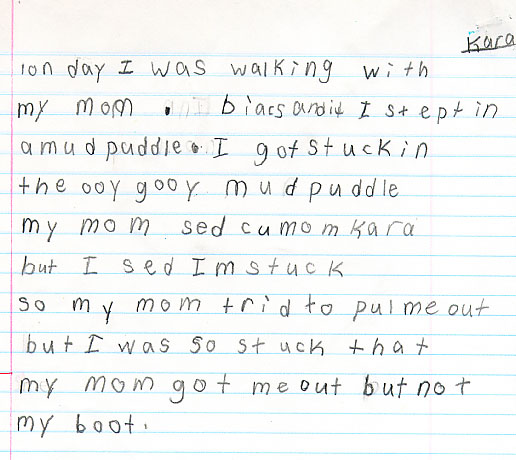 Kara
ion day I was walking with
my mom . I stept in
a mud puddle. I got stuck in
the ooy gooy mud puddle
my mom sed cumom Kara
but I sed Im stuck
so my mom trid to pul me out
but I was so stuck that
my mom got me out but not
my boot.